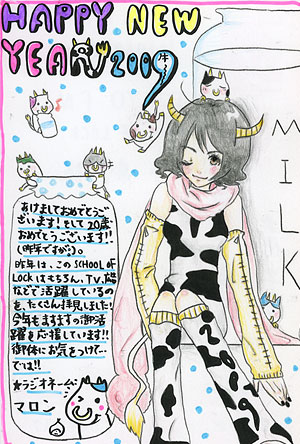 HAPPY NEW
YEAR 2009
MILK
あけましておめでとうご
ざいます!そして20歳
おめでとうございます!!
(昨年ですが…)。
昨年は、このSCHOOL OF
LOCKはもちろん、T.V、
などで活躍しているの
を、たくさん拝見しました!
今年もますますの御活
躍を応援しています!!
御体にお気をつけて…
では!!
★ラジオネーム
マロン
2009